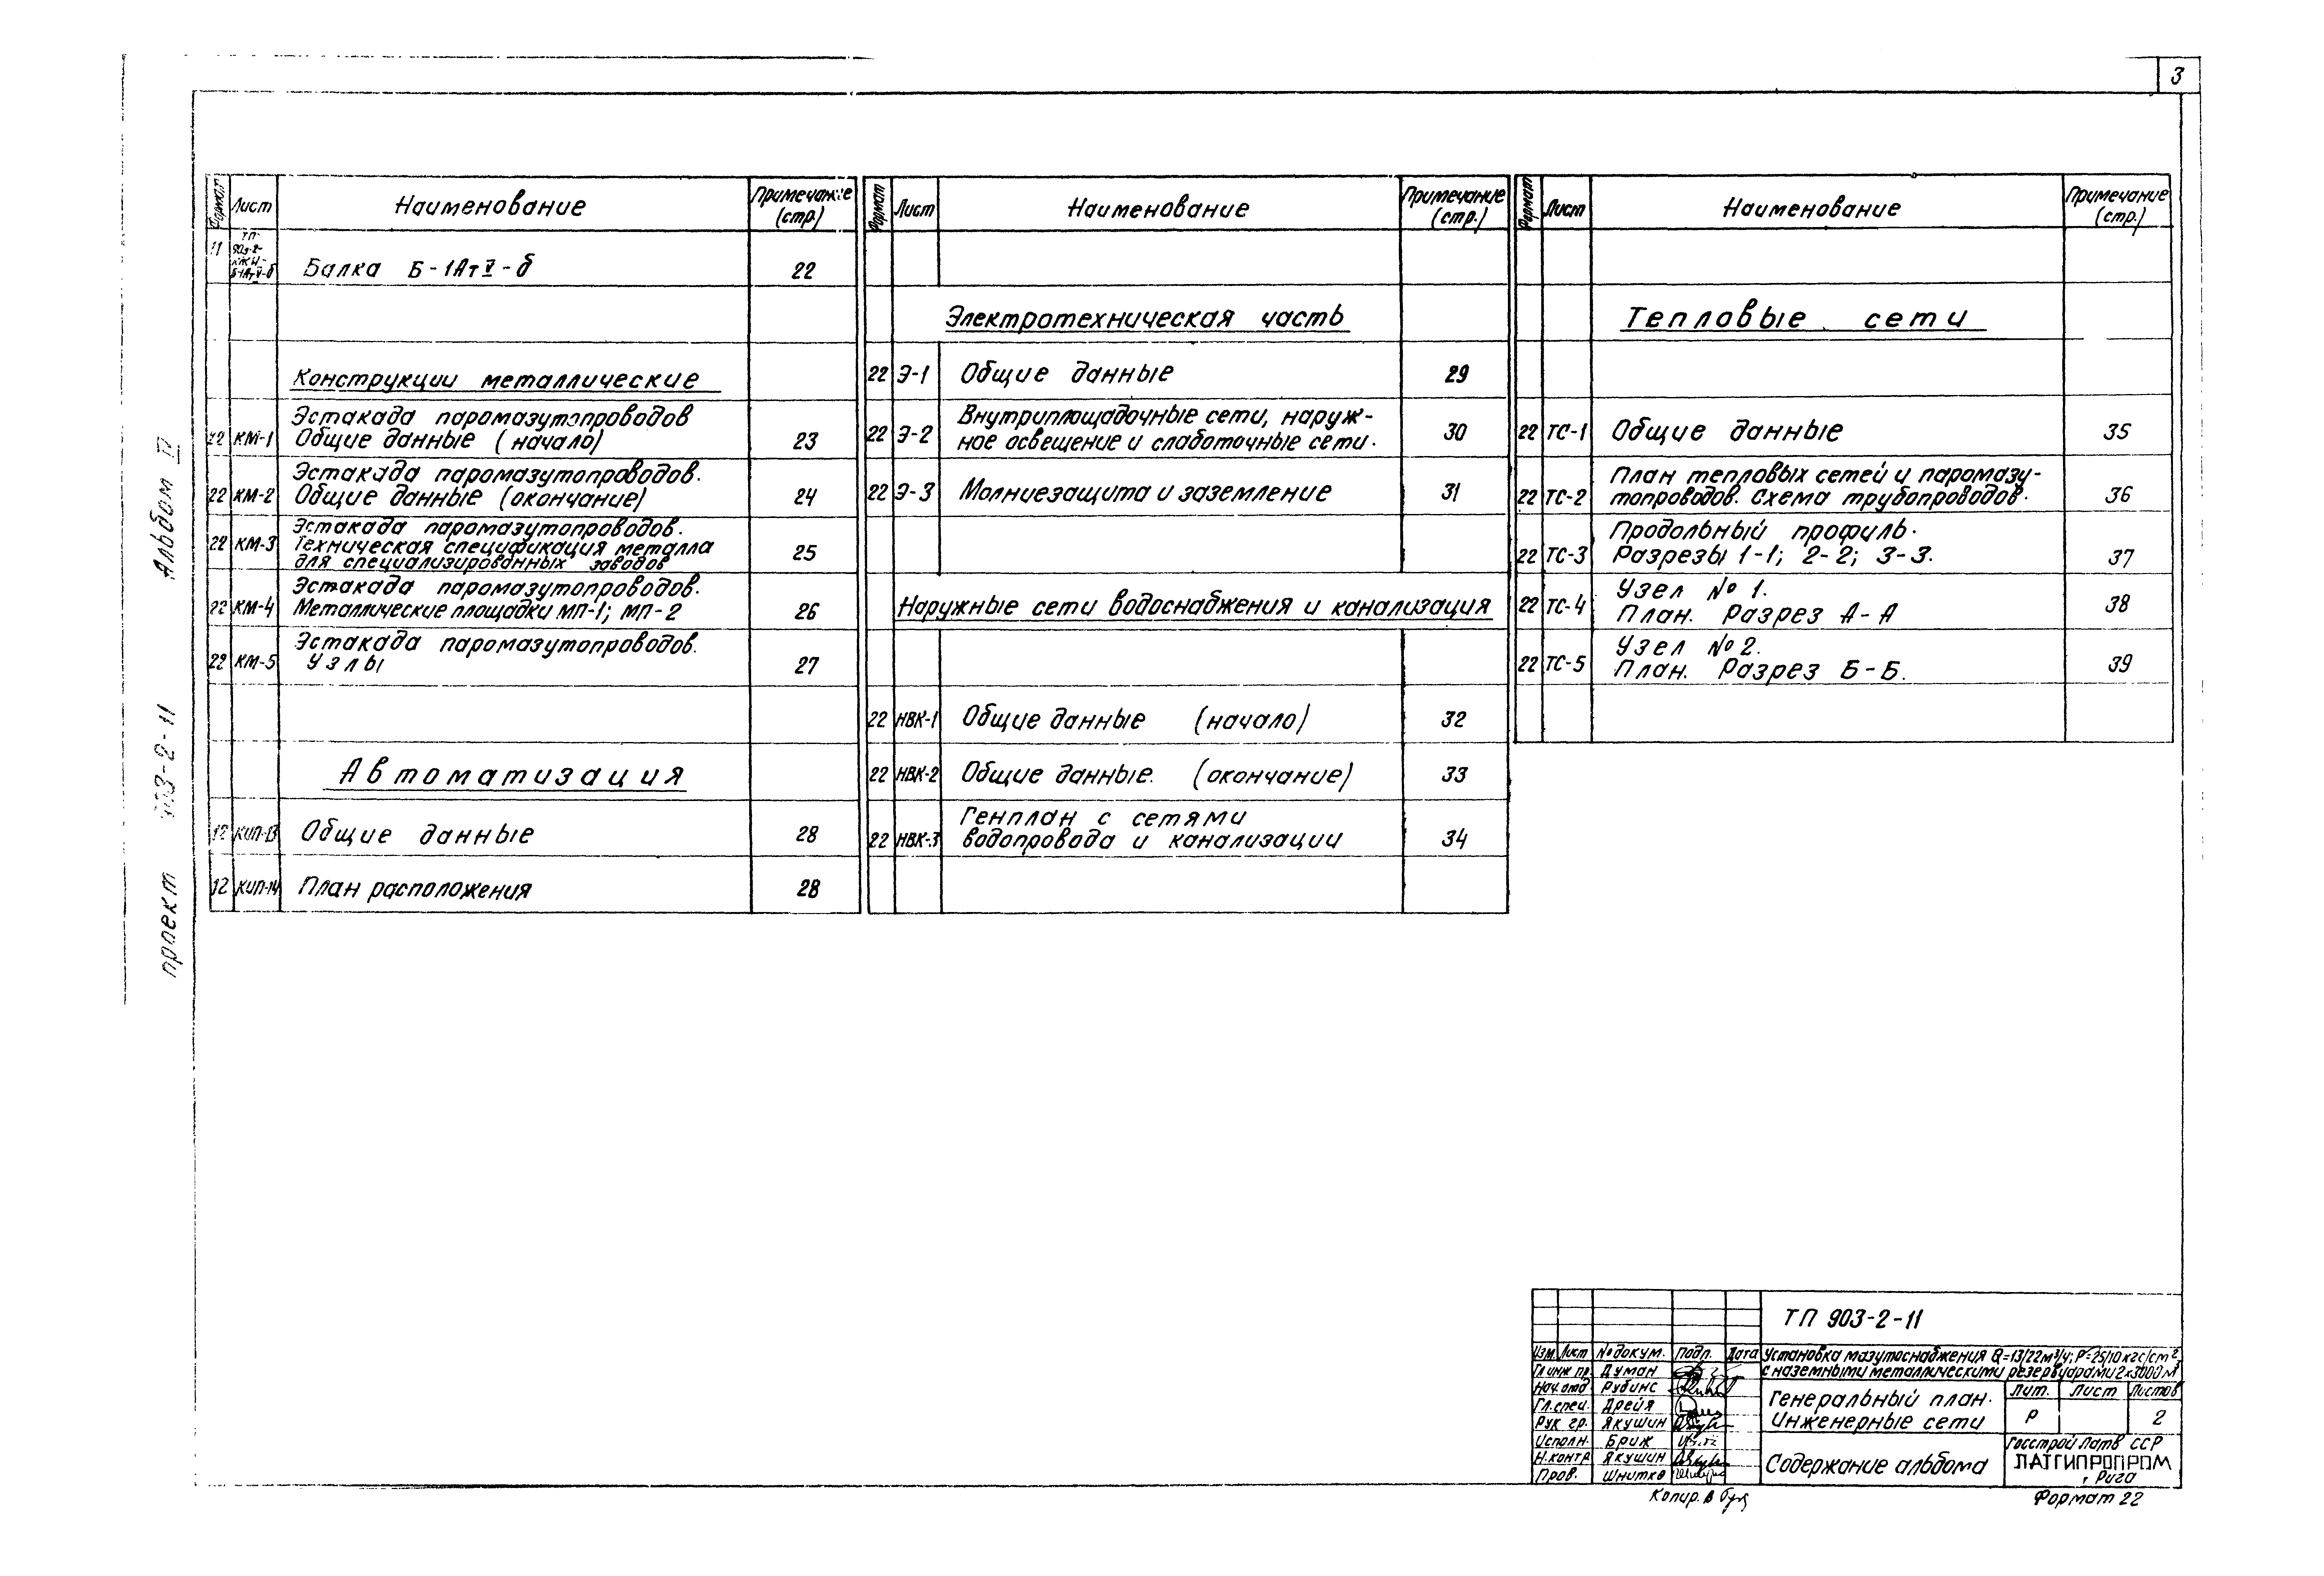 3
Формат Лист Наименование Примечание (стр.)
11 ТП- 903-2- КЖИ- Б-1АтV-б Балка Б-1АтV-б 22
Конструкции металлические
Эстакада паромазутопроводов
22 КМ-1 Общие данные (начало) 23
Эстакада паромазутопроводов.
22 КМ-2 Общие данные (окончание) 24
Эстакада паромазутопроводов.
22 КМ-3 Техническая спецификация металла
для специализированных заводов 25
Эстакада паромазутопроводов.
22 КМ-4 Металлические площадки МП-1; МП-2 26
Эстакада паромазутопроводов.
22 КМ-5 Узлы 27
Автоматизация
12 КИП-13 Общие данные 28
12 КИП-14 План расположения 28
Формат Лист Наименование Примечание (стр.)
Электротехническая часть
22 Э-1 Общие данные 29
Внутриплощадочные сети, наруж-
22 Э-2 ное освещение и слаботочные сети. 30
22 Э-3 Молниезащита и заземление 31
Наружные сети водоснабжения и канализация
22 НВК-1 Общие данные (начало) 32
22 НВК-2 Общие данные. (окончание) 33
Генплан с сетями
22 НВК-3 водопровода и канализации 34
Формат Лист Наименование Примечание (стр.)
Тепловые сети
22 ТС-1 Общие данные 35
План тепловых сетей и паромазу-
22 ТС-2 топроводов. Схема трубопроводов. 36
Продольный профиль.
22 ТС-3 Разрезы 1-1; 2-2; 3-3. 37
Узел № 1.
22 ТС-4 План. Разрез А-А 38
Узел № 2.
22 ТС-5 План. Разрез Б-Б. 39
Альбом II
проект 903-2-11
ТП 903-2-11
Изм. Лист № докум. Подп. Дата
Установка мазутоснабжения Q=13/22м³/ч; Р=25/10 кгс/см²
с наземными металлическими резервуарами 2х3000м³
Гл инж пр. Думан
Нач. отд Рубинс
Гл. спец. Дрейя
Рук гр. Якушин
Исполн. Бриж
Н. контр Якушин
Пров. Шнитко
Генеральный план.
Инженерные сети
Лит. Лист Листов
Р 2
Содержание альбома
Госстрой Латв ССР
ЛАТГИПРОПРОМ
г. Рига
Копир. В
Формат 22